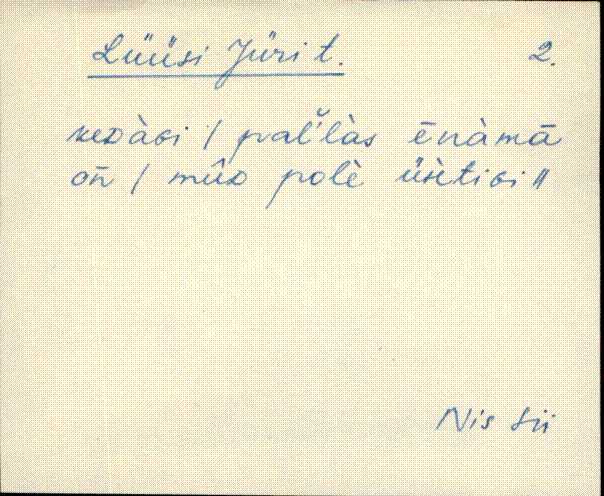 Lüüsi Jüri t. 2.
kᴇᴅàʙi / pal̆'làs ēnàmā
on̄ / mûᴅ polè üsètiʙi //
Nis Sii